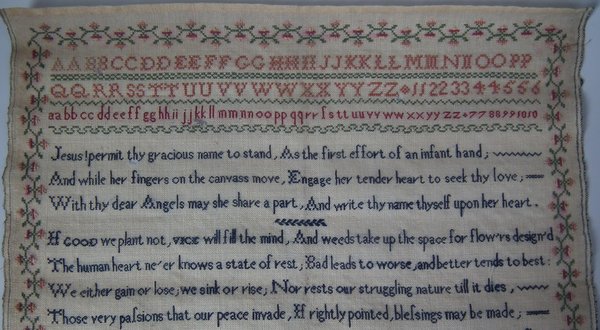 AABBCCDDEEFFGGHHIIJJKKLLMMNNOOPP
QQRRSSTTUUVVWWXXYYZZ 112233445566
aabbccddeeffgghhiijjkkllmmnnooppqqrrſsttuuvvwwxxyyzz 7788991010
Jesus! permit thy gracious name to stand, As the first effort of an infant hand;
And while her fingers on the canvass move, Engage her tender heart to seek thy love;
With thy dear Angels may she share a part, And write thy name thyself upon her heart.
If GOOD we plant not, VICE will fill the mind, And weeds take up the space for flow'rs design'd
The human heart ne'er knows a state of rest; Bad leads to worse, and better tends to best:
We either gain or lose; we sink or rise; Nor rests our struggling nature till it dies,
Those very paſsions that our peace invade, If rightly pointed, bleſsings may be made;